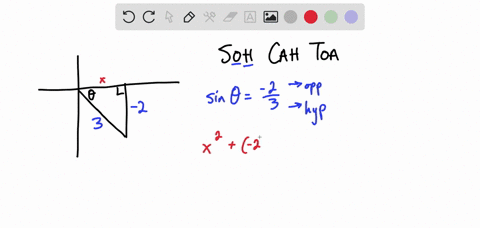 SOH CAH TOA
x
θ
-2
3
sin θ = -2/3 → opp
→ hyp
x² + (-2